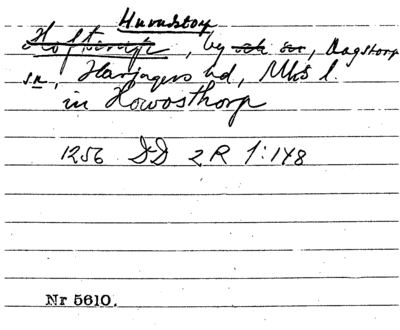 Hurvdstorp
Hofterup, by och sn, Dagstorp
sn, Harjagers hd, Mhs l.
in Howosthorp
1256 DD 2R 1:148
Nr 5610.